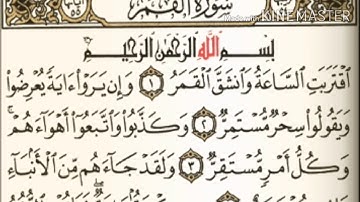 سُورَةُ القَمَرِ
KINEMASTER
بِسْمِ اللَّهِ الرَّحْمَٰنِ الرَّحِيمِ
ٱقْتَرَبَتِ ٱلسَّاعَةُ وَٱنشَقَّ ٱلْقَمَرُ ١ وَإِن يَرَوْا۟ ءَايَةً يُعْرِضُوا۟
وَيَقُولُوا۟ سِحْرٌ مُّسْتَمِرٌّ ٢ وَكَذَّبُوا۟ وَٱتَّبَعُوٓا۟ أَهْوَآءَهُمْ ۚ
وَكُلُّ أَمْرٍ مُّسْتَقِرٌّ ٣ وَلَقَدْ جَآءَهُم مِّنَ ٱلْأَنۢبَآءِ